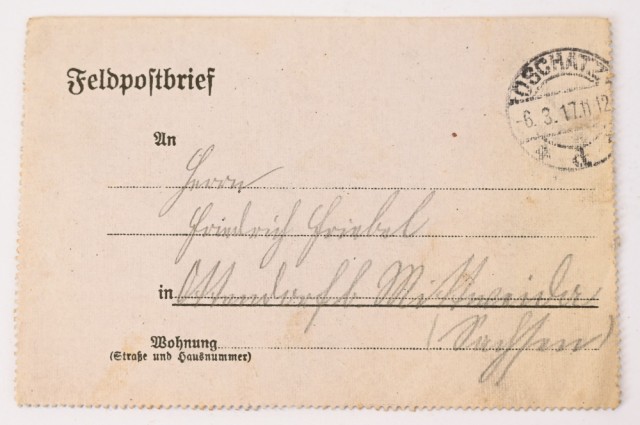 Feldpostbrief
OSCHATZ
-6.3.17.11-12
* d *
An
Herrn
Friedrich Friebel
in Ottendorf b. Mittweida
(Sachsen)
Wohnung
(Straße und Hausnummer)